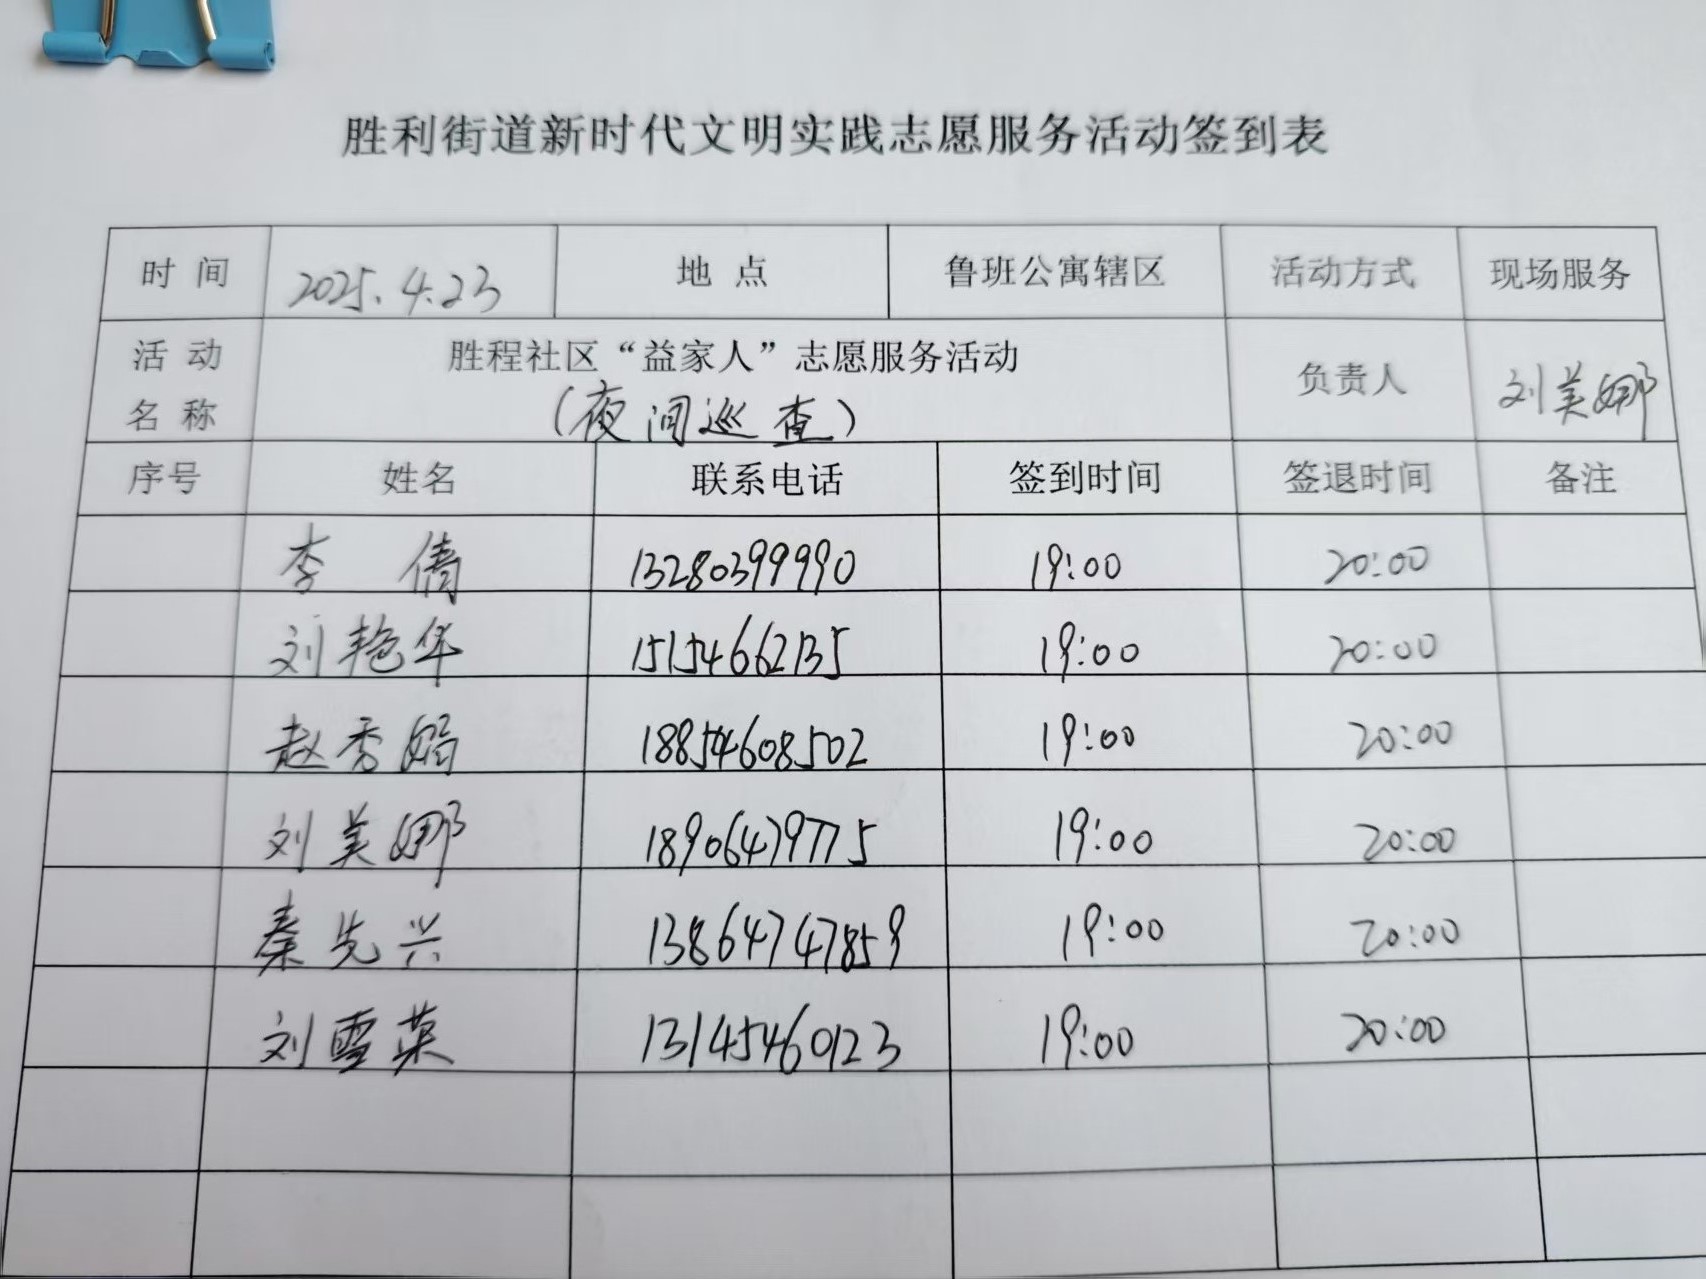 胜利街道新时代文明实践志愿服务活动签到表
时间 2025.4.23 地点 鲁班公寓辖区 活动方式 现场服务
活动名称 胜程社区“益家人”志愿服务活动 负责人 刘美娜
（夜间巡查）
序号 姓名 联系电话 签到时间 签退时间 备注
李倩 13280399990 19:00 20:00
刘艳华 15154662135 19:00 20:00
赵秀娟 18854608502 19:00 20:00
刘美娜 18906479775 19:00 20:00
秦先兴 13864747859 19:00 20:00
刘雪英 13145460123 19:00 20:00